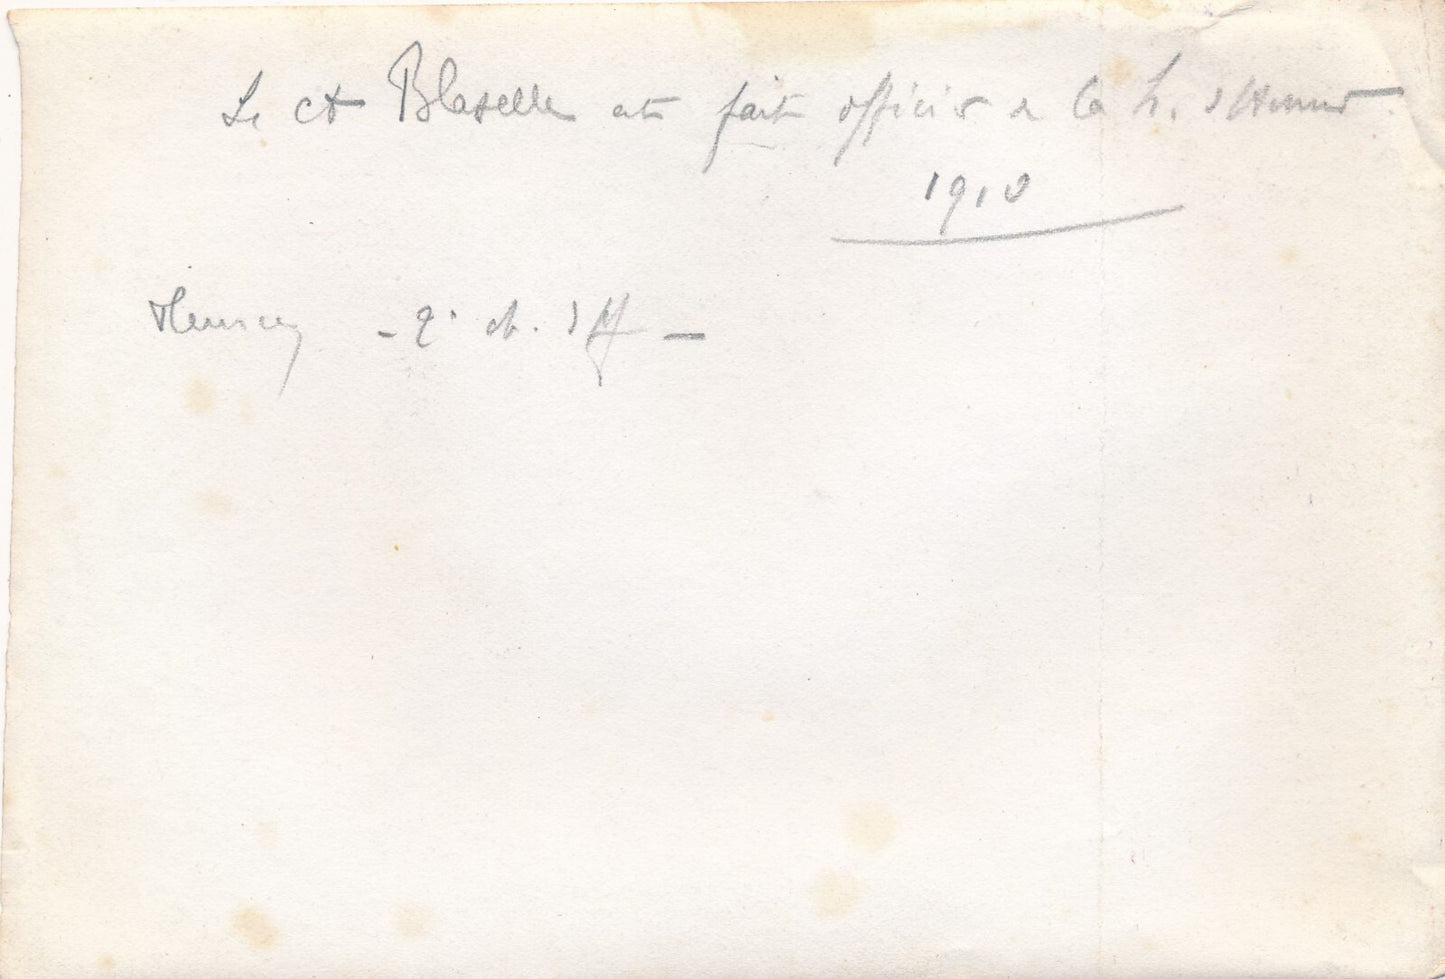 Le Ct Blaselle est fait officier de la L. d'Honneur.
1918
- 2e ch. d'Af -